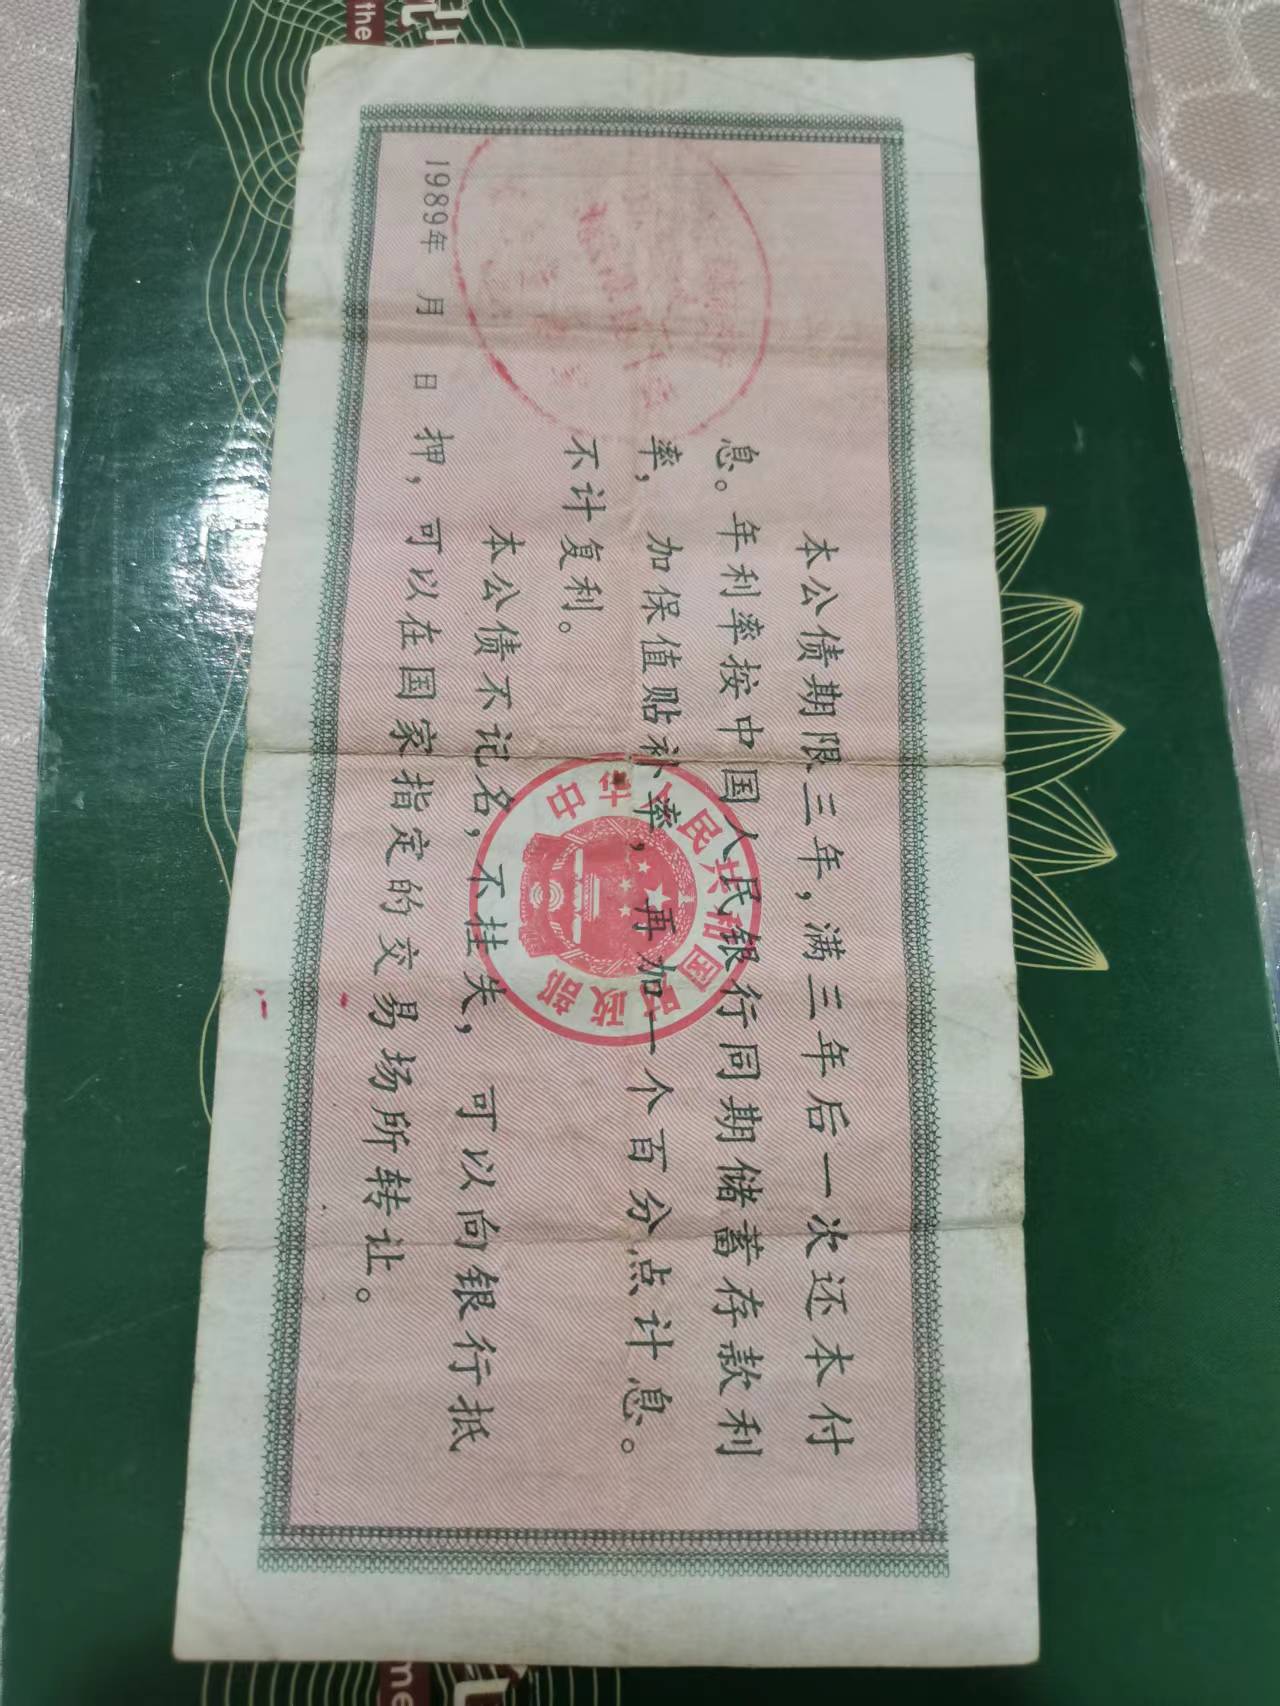 本公债期限三年，满三年后一次还本付
息。年利率按中国人民银行同期储蓄存款利
率，加保值贴补率，再加一个百分点计息。
不计复利。
本公债不记名，不挂失，可以向银行抵
押，可以在国家指定的交易场所转让。
1989年 月 日
中华人民共和国财政部
the
me